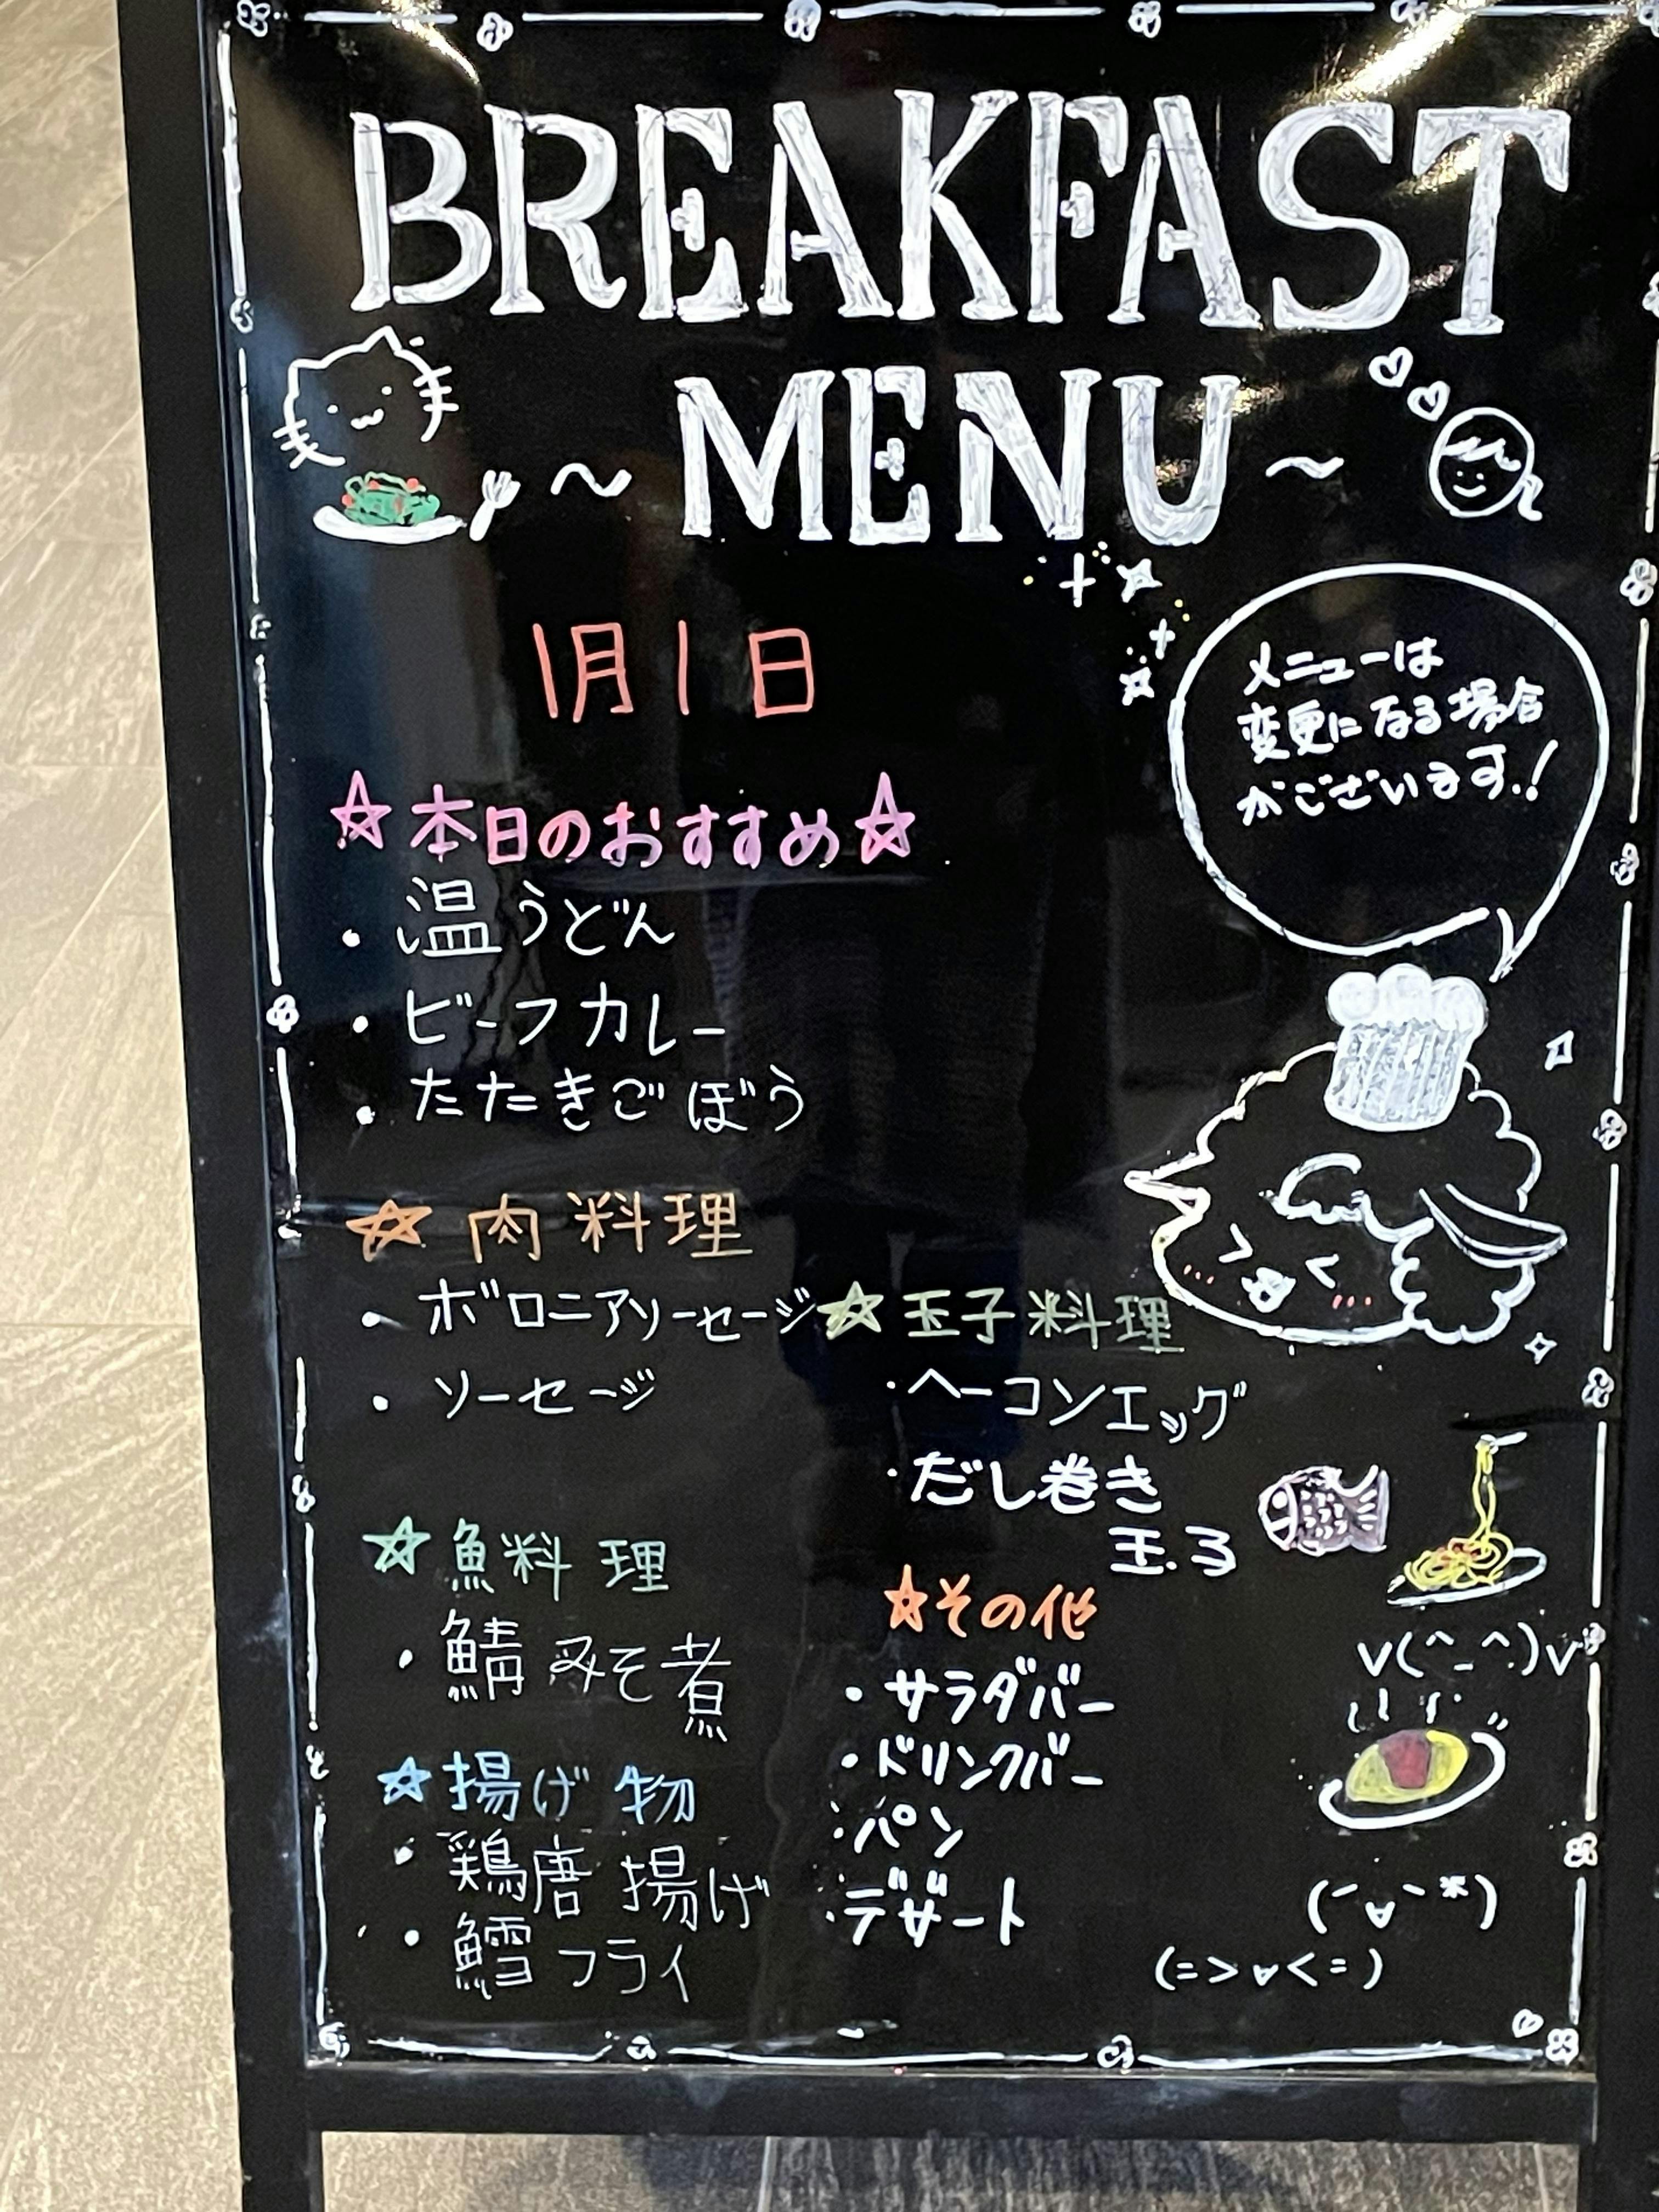 BREAKFAST
~ MENU ~
1月1日
メニューは
変更になる場合
がございます!
☆本日のおすすめ☆
・温うどん
・ビーフカレー
・たたきごぼう
☆肉料理
・ボロニアソーセージ
・ソーセージ
☆魚料理
・鯖みそ煮
☆揚げ物
・鶏唐揚げ
・鱈フライ
☆玉子料理
・ベーコンエッグ
・だし巻き
玉子
☆その他
・サラダバー
・ドリンクバー
・パン
・デザート
v(^_^)v
(´v`*)
(=>v<=)